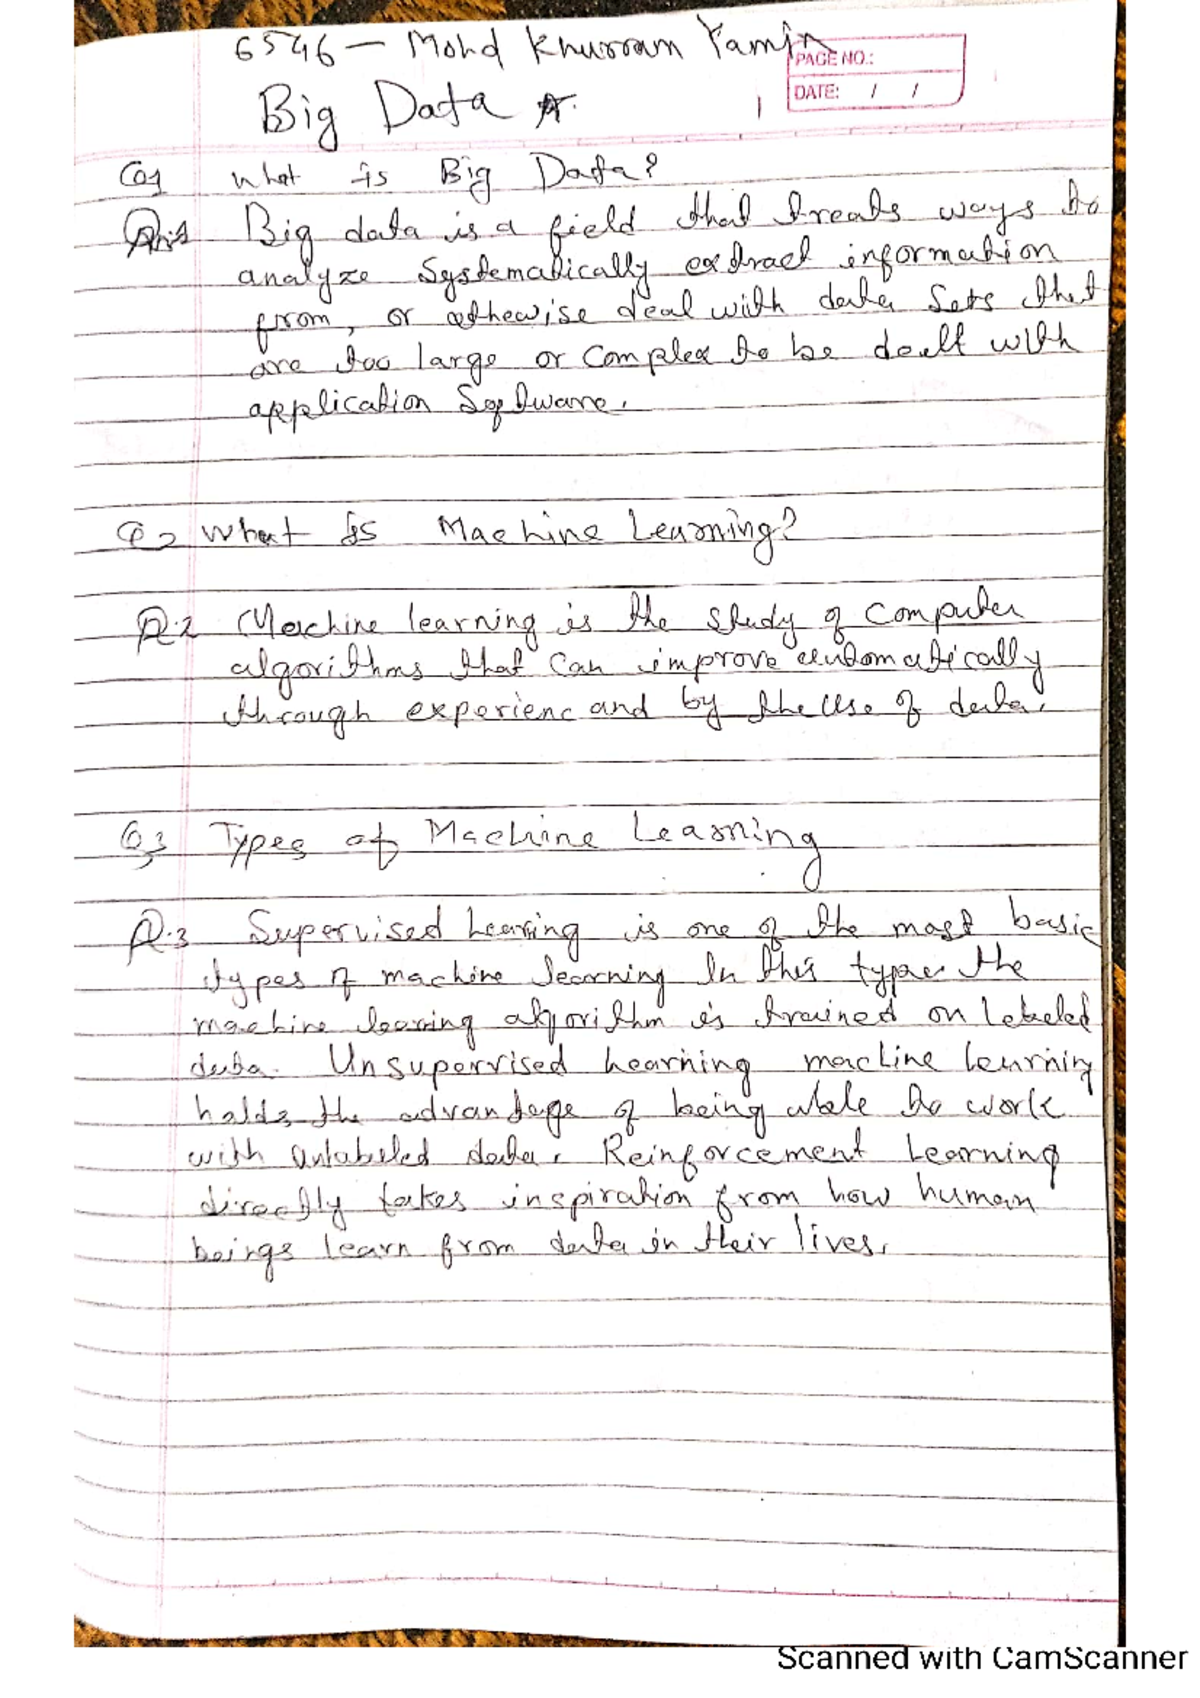 6546 - Mohd Khurram Yamin
PAGE NO.:
DATE: / /
Big Data
Q1 What is Big Data?
Ans Big data is a field that treats ways to
analyze systematically extract information
from, or othewise deal with data sets that
are too large or complex to be dealt with
application Software.
Q2 What is Machine Learning?
A.2 Machine learning is the study of Computer
algorithms that can improve automatically
through experienc and by the use of data.
Q3 Types of Machine Learning
A.3 Supervised Learning is one of the most basic
types of machine learning In this type the
machine learning algorithm is trained on Labeled
data. Unsupervised Learning machine learning
holds the advantage of being able to work
with unlabeled data. Reinforcement Learning
directly takes inspiration from how human
beings learn from data in their lives.
Scanned with CamScanner